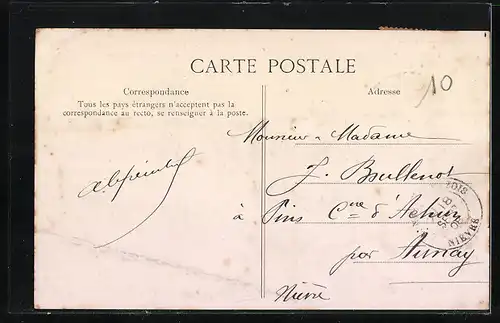 CARTE POSTALE
10
Correspondance
Adresse
Tous les pays étrangers n'acceptent pas la
correspondance au recto, se renseigner à la poste.
Monsieur Madame
J. Bsullenot
à Pins Cne d'Achun
par Aunay
Nièvre
NIÈVRE